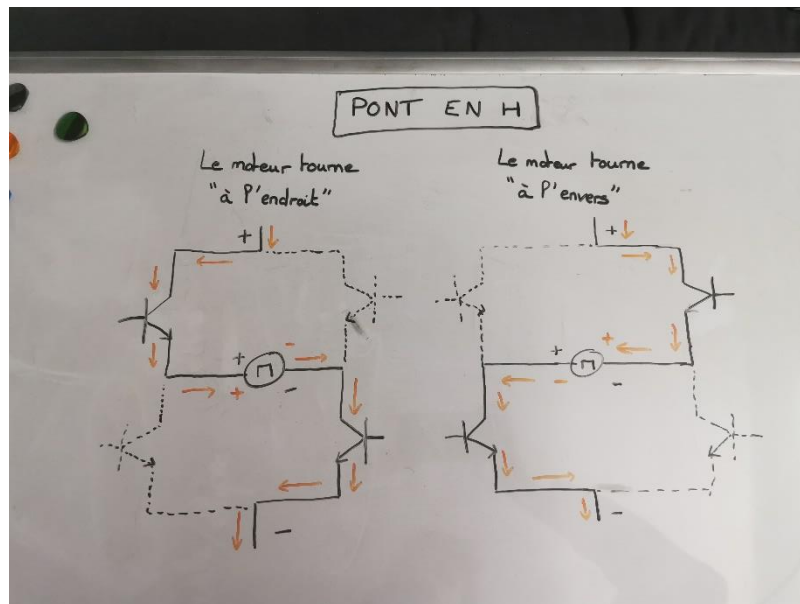 PONT EN H
Le moteur tourne
"à l'endroit"
Le moteur tourne
"à l'envers"
+
+
+ -
M
+ -
+ +
M
- -
-
-